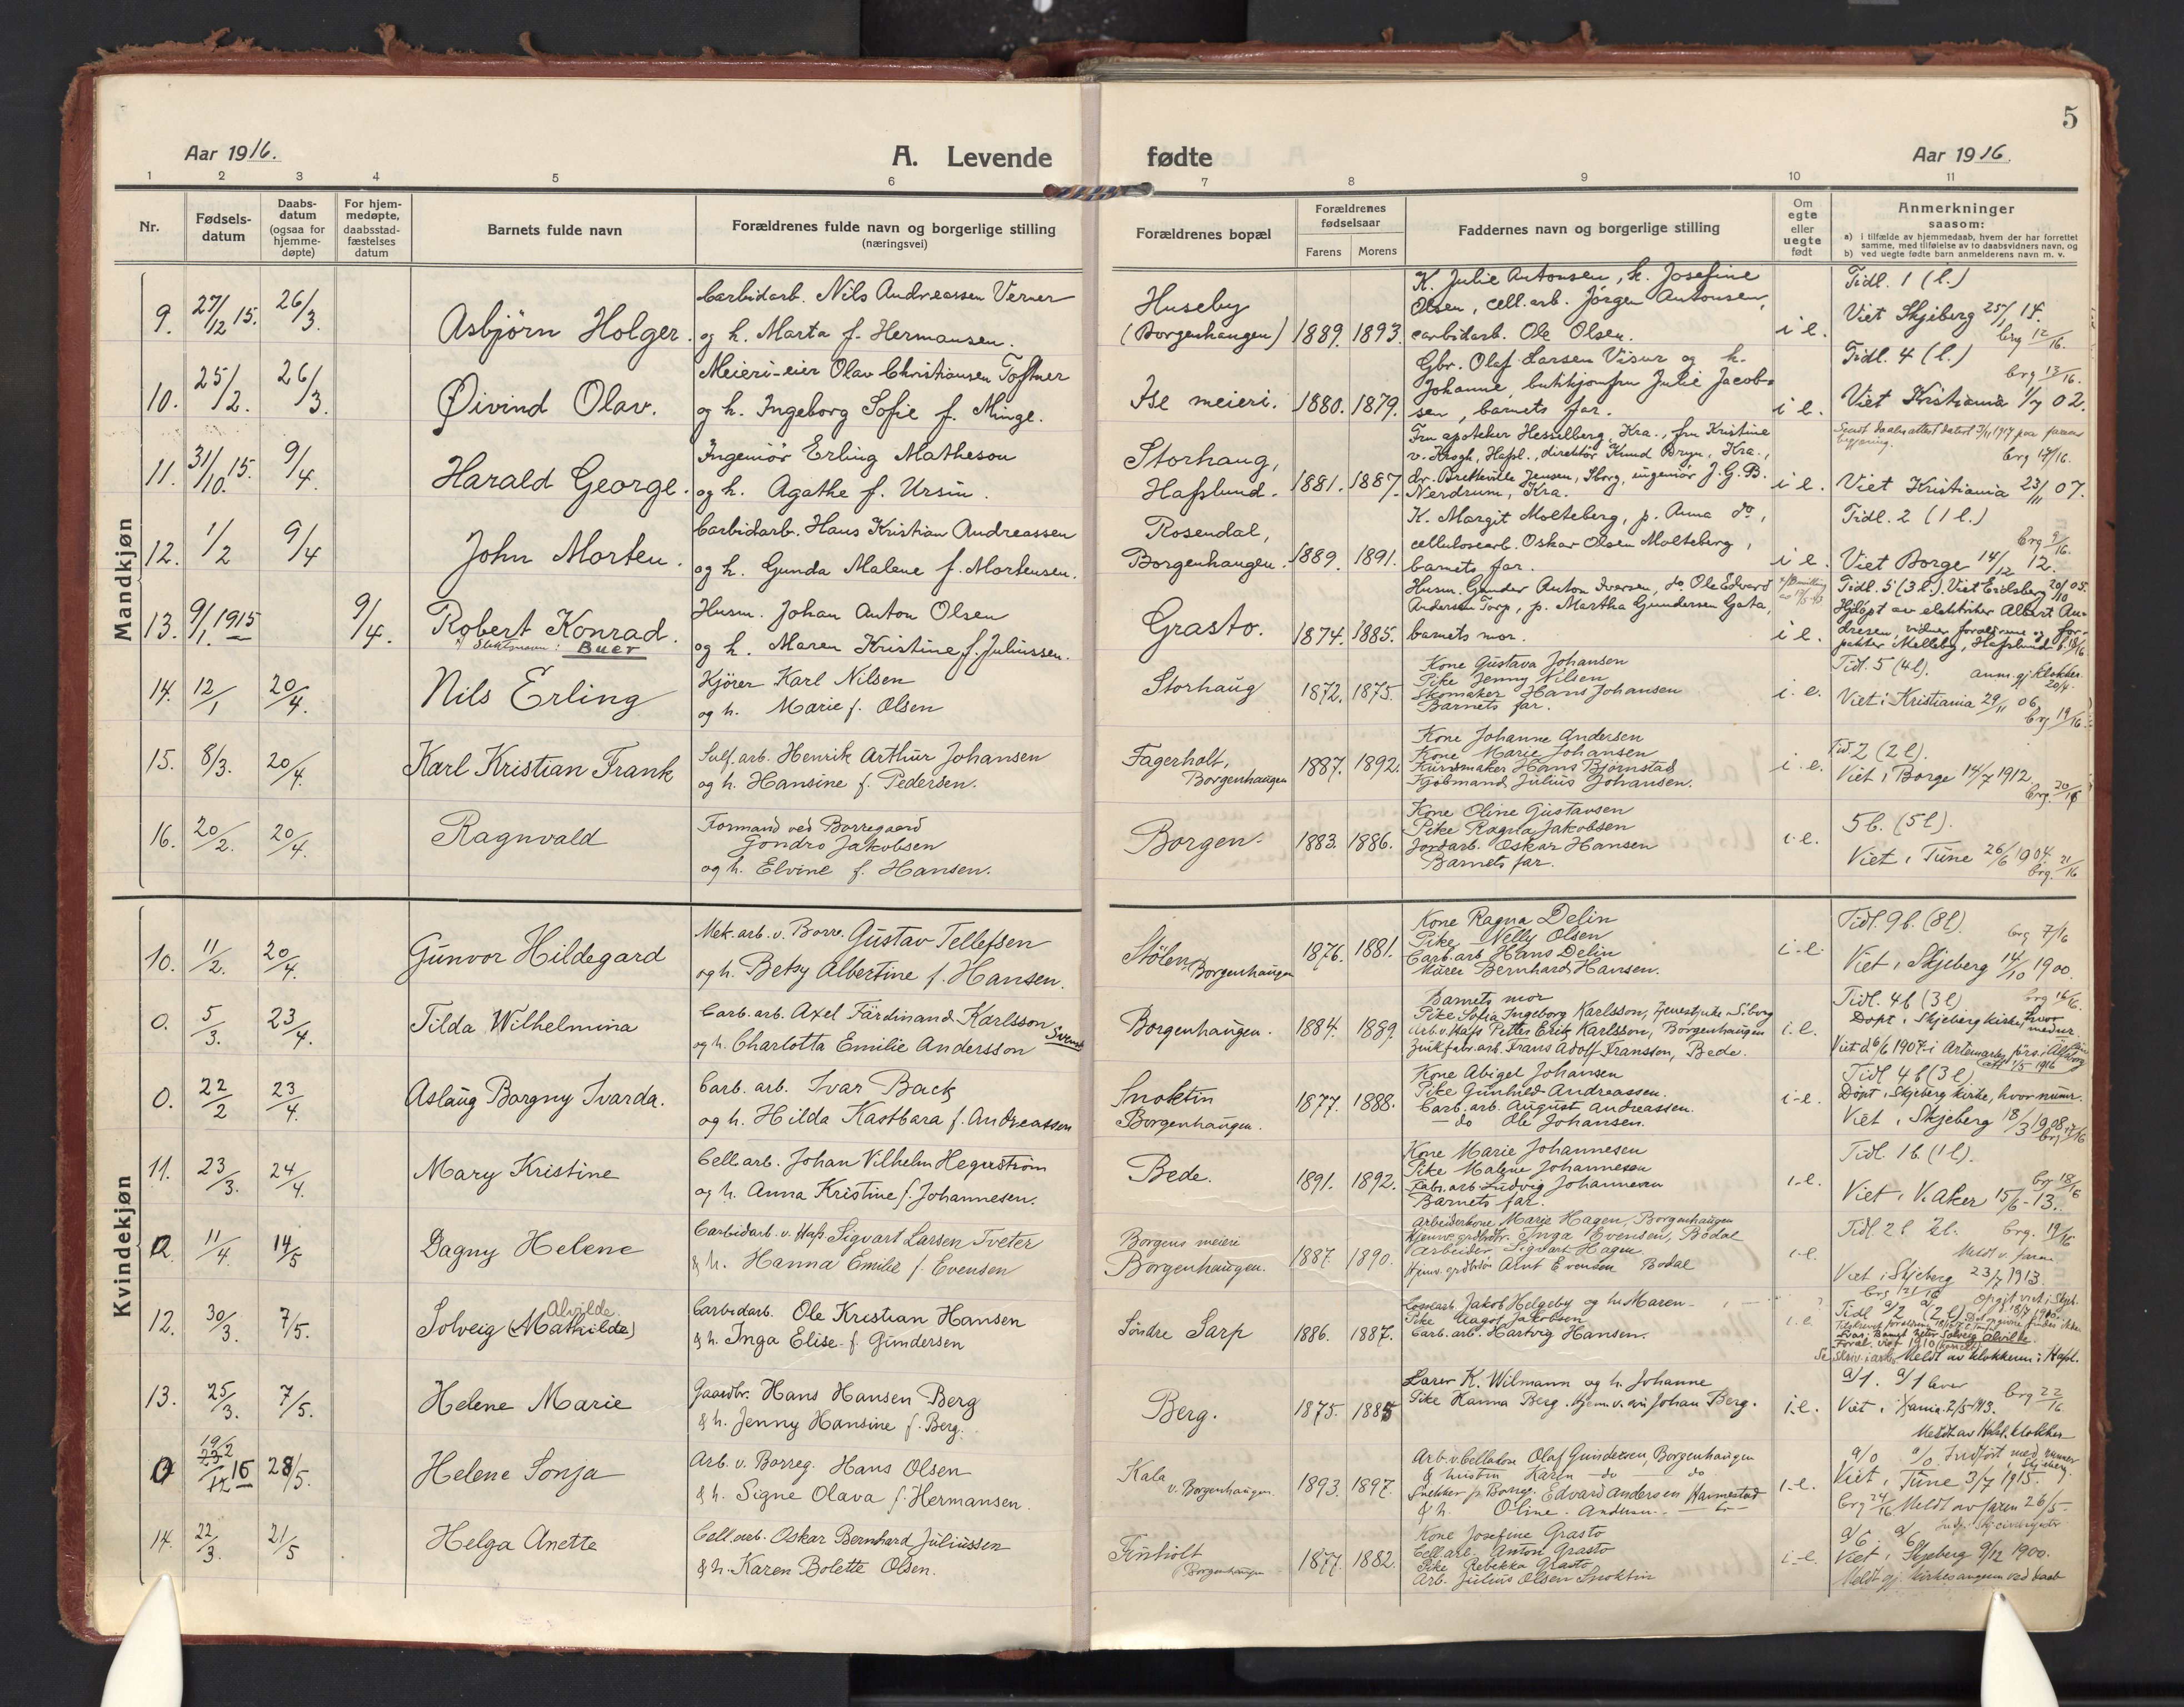 5
Aar 1916.
A. Levende fødte
Aar 1916.
1 2 3 4 5 6 7 8 9 10 11
Nr.
Fødsels-
datum
Daabs-
datum
(ogsaa for
hjemme-
døpte)
For hjem-
medøpte,
daabsstad-
fæstelses
datum
Barnets fulde navn
Forældrenes fulde navn og borgerlige stilling
(næringsvei)
Forældrenes bopæl
Forældrenes
fødselsaar
Farens Morens
Faddernes navn og borgerlige stilling
Om
egte
eller
uegte
født
Anmerkninger
saasom:
a) i tilfælde av hjemmedaab, hvem der har forrettet
samme, med tilføielse av to daabsvidners navn, og
b) ved uegte fødte barn anmelderens navn m. v.
Mandkjøn
9. 27/12 15. 26/3. Asbjörn Holger.
Carbidarb. Nils Andreassen Verner
og h. Marta f. Hermansen.
Huseby
(Borgenhaugen) 1889. 1893.
K. Julie Antonsen, k. Josefine
Olsen, cell.arb. Jörgen Antonsen,
carbidarb. Ole Olsen.
i e.
Tidl. 1 (l.)
Viet Skjeberg 25/1 14.
brg 12/16.
10. 25/2. 26/3. Øivind Olav.
Meieri-eier Olav Christiansen Toftner
og h. Ingeborg Sofie f. Minge.
Ise meieri. 1880. 1879.
Gbr. Olaf Larsen Visur og h.
Johanne, butikjomfru Julie Jacob-
sen, barnets far.
i e.
Tidl. 4 (l.)
brg 13/16.
Viet Kristiania 1/7 02.
11. 31/10 15. 9/4. Harald George.
Ingeniör Erling Matheson
og h. Agathe f. Ursin.
Storhaug,
Hafslund. 1881. 1887.
Fru apoteker Hesselberg, Kra., fru Kristine
v. Krogh, Hafsl., direktör Knud Bryn, Kra.,
dr. Bretteville Jensen, Sborg, ingeniör J. G. B.
Nerdrum, Kra.
i e.
Sendt daabsattest datert 3/11 1917 paa farens
begjæring.
brg 17/16.
Viet Kristiania 23/11 07.
12. 1/2 9/4 John Morten.
Carbidarb. Hans Kristian Andreassen
og h. Gunda Malene f. Mortensen.
Rosendal,
Borgenhaugen. 1889. 1891.
K. Margit Molteberg, p. Anna do,
cellulosearb. Oskar Olsen Molteberg,
barnets far.
i e.
Tidl. 2 (1 l.)
brg 9/16.
Viet Borge 14/12 12.
13. 9/1 1915 9/4. Robert Konrad.
Slektsnavn: Buer
Husm. Johan Anton Olsen
og h. Maren Kristine f. Juliussen.
Grasto. 1874. 1885.
Husm. Gunder Anton Iversen, do Ole Edvard
Andersen Torp, p. Martha Gundersen Gata,
barnets mor.
i e.
Tidl. 5 (3 l.). Viet Eidsberg 20/10 05.
Hjdöpt av elektriker Albert An-
dresen, vidner forældrene og for-
pakter Melleby, Hafslund b. 18/16
14. 12/1 20/4. Nils Erling
Kjörer Karl Nilsen
og h. Marie f. Olsen
Storhaug 1872. 1875.
Kone Gustava Johansen
Pike Jenny Nilsen
Skomaker Hans Johansen
Barnets far.
i. e.
Tidl. 5 (4 l). anm. gj. klokker
20/4.
Viet i Kristiania 29/11 06.
brg 19/16.
15. 8/3. 20/4. Karl Kristian Frank
Sulf. arb. Henrik Arthur Johansen
og h. Hansine f. Pedersen.
Fagerholt,
Borgenhaugen 1887. 1892.
Kone Johanne Andersen
Kone Marie Johansen
Kurvmaker Hans Björnstad
Kjöbmand Julius Johansen.
i. e.
Tid. 2 (2 l).
Viet i Borge 14/7 1912.
brg. 20/16
16. 20/2. 20/4. Ragnvald
Formand ved Borregaard
Gondro Jakobsen
og h. Elvine f. Hansen.
Borgen. 1883. 1886.
Kone Oline Gustavsen
Pike Ragna Jakobsen
Jordarb. Oskar Hansen
Barnets far.
i. e.
5 b. (5 l).
Viet i Tune 26/6 1904.
brg. 21/16
Kvindekjøn
10. 11/2. 20/4. Gunvor Hildegard
Mek. arb. v. Borre. Gustav Tellefsen
og h. Betsy Albertine f. Hansen.
Stölen,
Borgenhaugen 1876. 1881.
Kone Ragna Delin
Pike Nelly Olsen
Carb. arb Hans Delin
Murer Bernhard Hansen.
i. e.
Tidl. 9 b. (8 l). brg 7/16
Viet i Skjeberg 14/10 1900.
0. 5/3. 23/4. Tilda Wilhelmina
Carb. arb. Axel Färdinand Karlsson
og h. Charlotta Emilie Andersson Svensk
Borgenhaugen. 1884. 1889.
Barnets mor
Pike Sofia Ingeborg Karlsson, tjenestpike Siborg
Arb. v. Hafs Petter Erik Karlsson, Borgenhaugen
Zinkfabr. arb. Frans Adolf Fransson, Bede.
i. e.
Tidl. 4 b (3 l) brg 16/16.
Döpt i Skjeberg kirke, hvor
Viet d 6/6 1907 i Artemarks
att 1/5 1916
0. 22/2 23/4. Aslaug Borgny Ivarda.
Carb. arb. Ivar Back
og h. Hilda Kastbara f. Andreassen
Snoktin
Borgenhaugen. 1877. 1888.
Kone Abigel Johansen
Pike Gunhild Andreassen.
Carb. arb. August Andreassen.
— do Ole Johansen.
i-e.
Tidl 4 b (3 l)
Döpt i Skjeberg kirke, hvor numr.
Viet i Skjeberg 18/3 1908.
11. 23/3. 24/4. Mary Kristine
Cell. arb. Johan Vilhelm Hegerström
og h. Anna Kristine f. Johannesen.
Bede. 1891. 1892.
Kone Marie Johannesen
Pike Malene Johannesen
Fabr. arb Ludvig Johannesen
Barnets far.
i-e.
Tidl. 1 b (1 l).
brg 18/16
Viet i V. Aker 15/6 - 13.
11/4 14/5 Dagny Helene
Carbidarb. v. Hafs Sigvart Larsen Tveter
& h. Hanna Emilie f. Evensen
Borgens meieri
Borgenhaugen. 1887. 1890.
Arbeiderkone Marie Hagen, Borgenhaugen
Hjemv. grdbrdtr. Inga Evensen, Bodal
Arbeider Sigvart Hagen
Hjemv. grdbrsön Alvt Evensen Bodal
i-e.
Tidl 2 l 2 l. brg. 19/16
Meldt v. faren
Viet i Skjeberg 23/7 1913.
12. 30/3. 7/5. Solveig (Mathilde) Alvilde
Carbidarb. Ole Kristian Hansen
& h. Inga Elise f. Gundersen
Söndre Sarp 1886. 1887.
Jakob Helgeby og h. Maren
Pike Aagot Jakobsen
Carb. arb. Hartvig Hansen.
i. e
Svar: Barnet heter Solveig Alvilde.
Meldt av klokkeren i Hafsl.
13. 25/3. 7/5. Helene Marie
Gaardbr. Hans Hansen Berg
& h. Jenny Hansine f. Berg.
Berg. 1875. 1885
Lærer K. Wilmann og h. Johanne
Pike Hanna Berg. Hjem. v. Johan Berg.
i. e.
a/1. a/1 lever brg 22/16
Viet i Kania. 2/5-1913.
Meldt av Hafsl. klokker
0 19/2 16 28/5. Helene Sonja
Arb. v. Borreg. Hans Olsen
& h. Signe Olava f. Hermansen.
Kala
v. Borgenhaugen. 1893. 1897.
Arb. v. Cellulose Olaf Gundersen, Borgenhaugen
& hustru Karen do do
Snekker p. Borreg. Edvard Andersen Havnestad
& h. Oline Andersen
i-e.
a/0 a/0. Indført med numer
i Skjeberg.
Viet i Tune 3/7 1915.
brg 24/16 Meldt av faren 26/5.
14. 22/3. 21/5 Helga Anette
Cell. arb. Oskar Bernhard Juliussen
& h. Karen Bolette Olsen.
Finholt
Borgenhaugen 1877. 1882.
Kone Josefine Grasto
Cell. arb. Anton Grasto
Pike Rebekka Grasto,
Arb. Julius Olsen Snoktin
i-e.
a/6 a/6
Viet i Skjeberg 9/12 1900.
Meldt gj. kirkesangeren ved daab